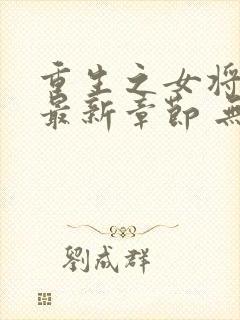 重生之女将
最新章节 无
刘成群